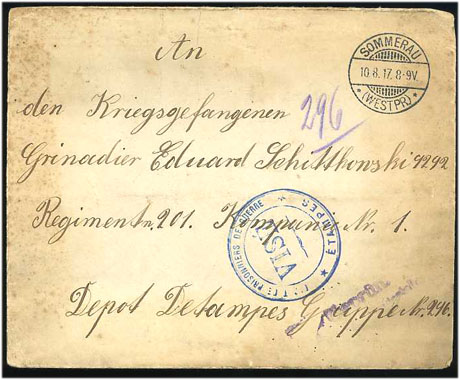 An
SOMMERAU
10.8.17. 8-9V.
* (WESTPR) *
den Kriegsgefangenen
296
Grinadier Eduard Schittkonski 4292
Regiment nr. 201. Kompanie Nr. 1.
PRISONNIERS DE GUERRE
VISÉ
Depot Detampes Gruppe Nr. 296.